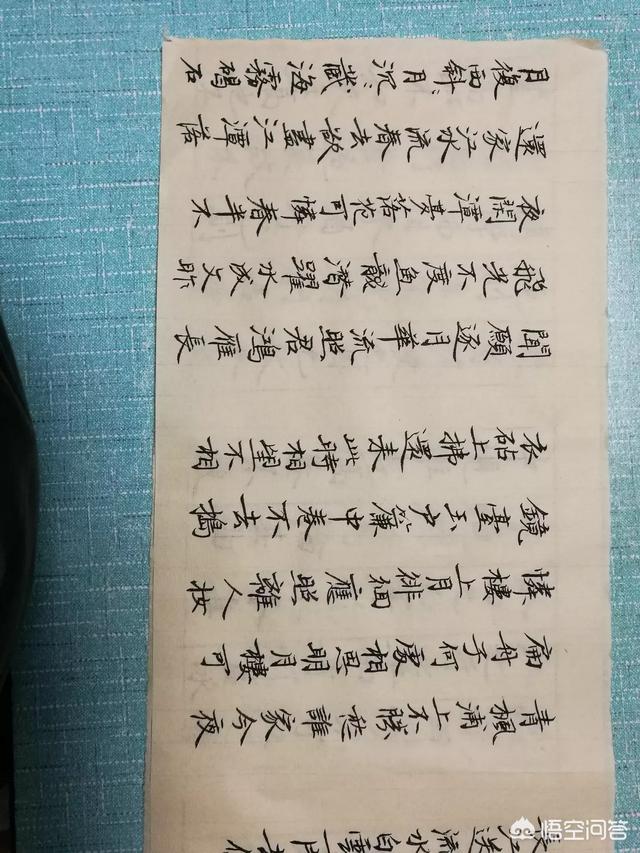 長江送流水白雲一片去
青楓浦上不勝愁誰家今夜
扁舟子何處相思明月樓可
憐樓上月徘徊應照離人妝
鏡臺玉户簾中卷不去搗
衣砧上拂還来此時相望不相
聞願逐月華流照君鴻雁長
飛光不度魚龍潜躍水成文昨
夜閒潭夢落花可憐春半不
還家江水流春去欲盡江潭落
月復西斜〻月沉〻藏海霧碣石
悟空问答